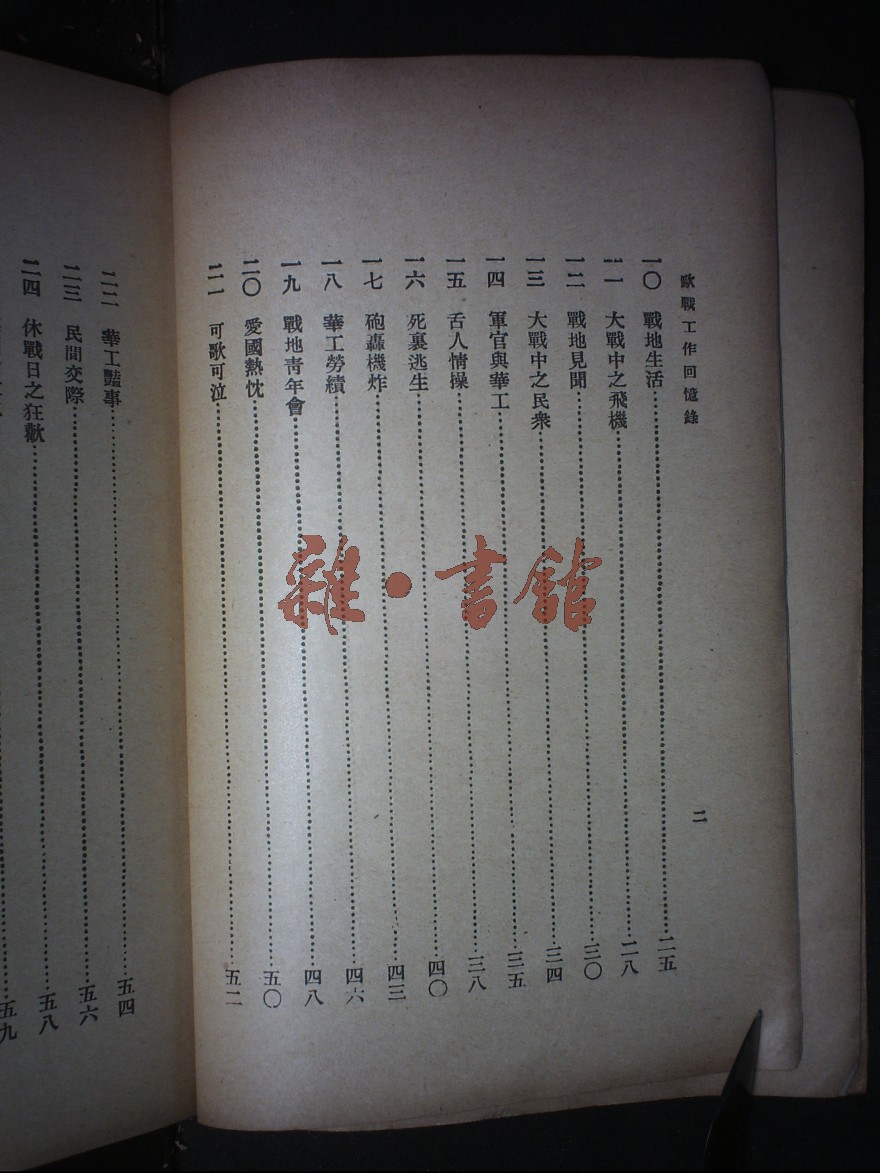 歐戰工作回憶錄
二
一〇 戰地生活 二五
一一 大戰中之飛機 二八
一二 戰地見聞 三〇
一三 大戰中之民衆 三四
一四 軍官與華工 三五
一五 舌人情操 三八
一六 死裏逃生 四〇
一七 砲轟機炸 四三
一八 華工勞績 四六
一九 戰地靑年會 四八
二〇 愛國熱忱 五〇
二一 可歌可泣 五二
二二 華工豔事 五四
二三 民間交際 五六
二四 休戰日之狂歡 五八
五九
雜·書館